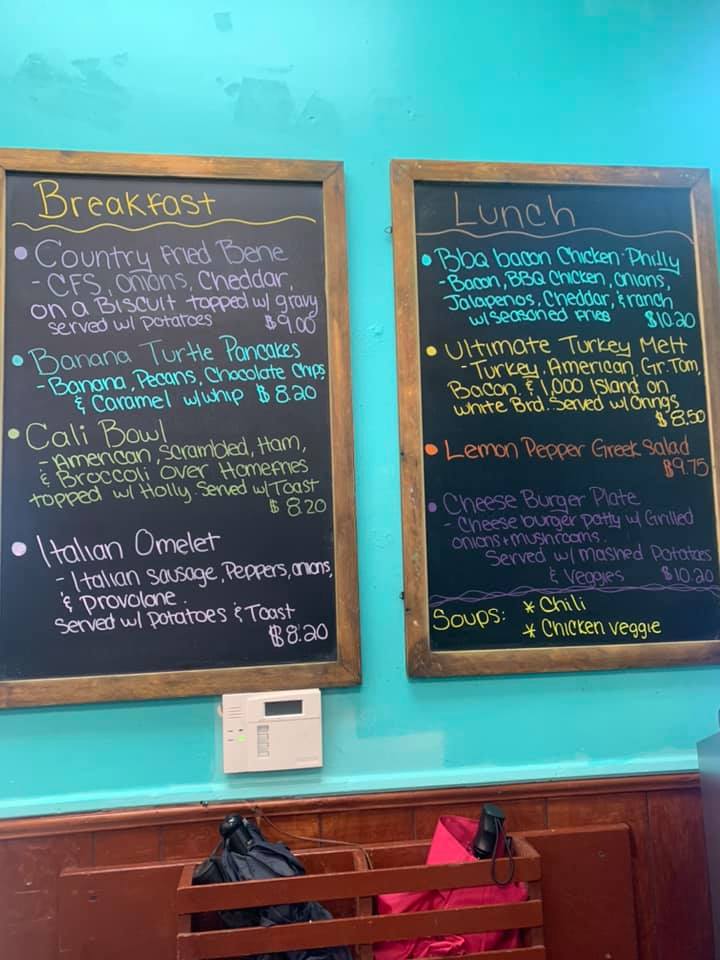 Breakfast
• Country Fried Bene
- CFS, onions, Cheddar,
on a Biscuit topped w/ gravy
served w/ potatoes $9.00
• Banana Turtle Pancakes
- Banana, Pecans, Chocolate Chips,
& Caramel w/whip $8.20
• Cali Bowl
- American, Scrambled, Ham,
& Broccoli over Homefries
topped w/ Holly. Served w/Toast
$8.20
• Italian Omelet
- Italian Sausage, Peppers, onions,
& Provolone.
Served w/ Potatoes & Toast
$8.20
Lunch
• Bbq bacon Chicken Philly
- Bacon, BBQ Chicken, onions,
Jalapenos, Cheddar, & ranch
w/ seasoned fries $10.20
• Ultimate Turkey Melt
- Turkey, American, Gr. Tom,
Bacon, & 1,000 Island on
white Brd. Served w/ Onngs
$8.50
• Lemon Pepper Greek Salad
$9.75
• Cheese Burger Plate
- Cheese burger patty w/ Grilled
onions + mushrooms.
Served w/ mashed Potatoes
& Veggies $10.20
Soups: * Chili
* Chicken veggie